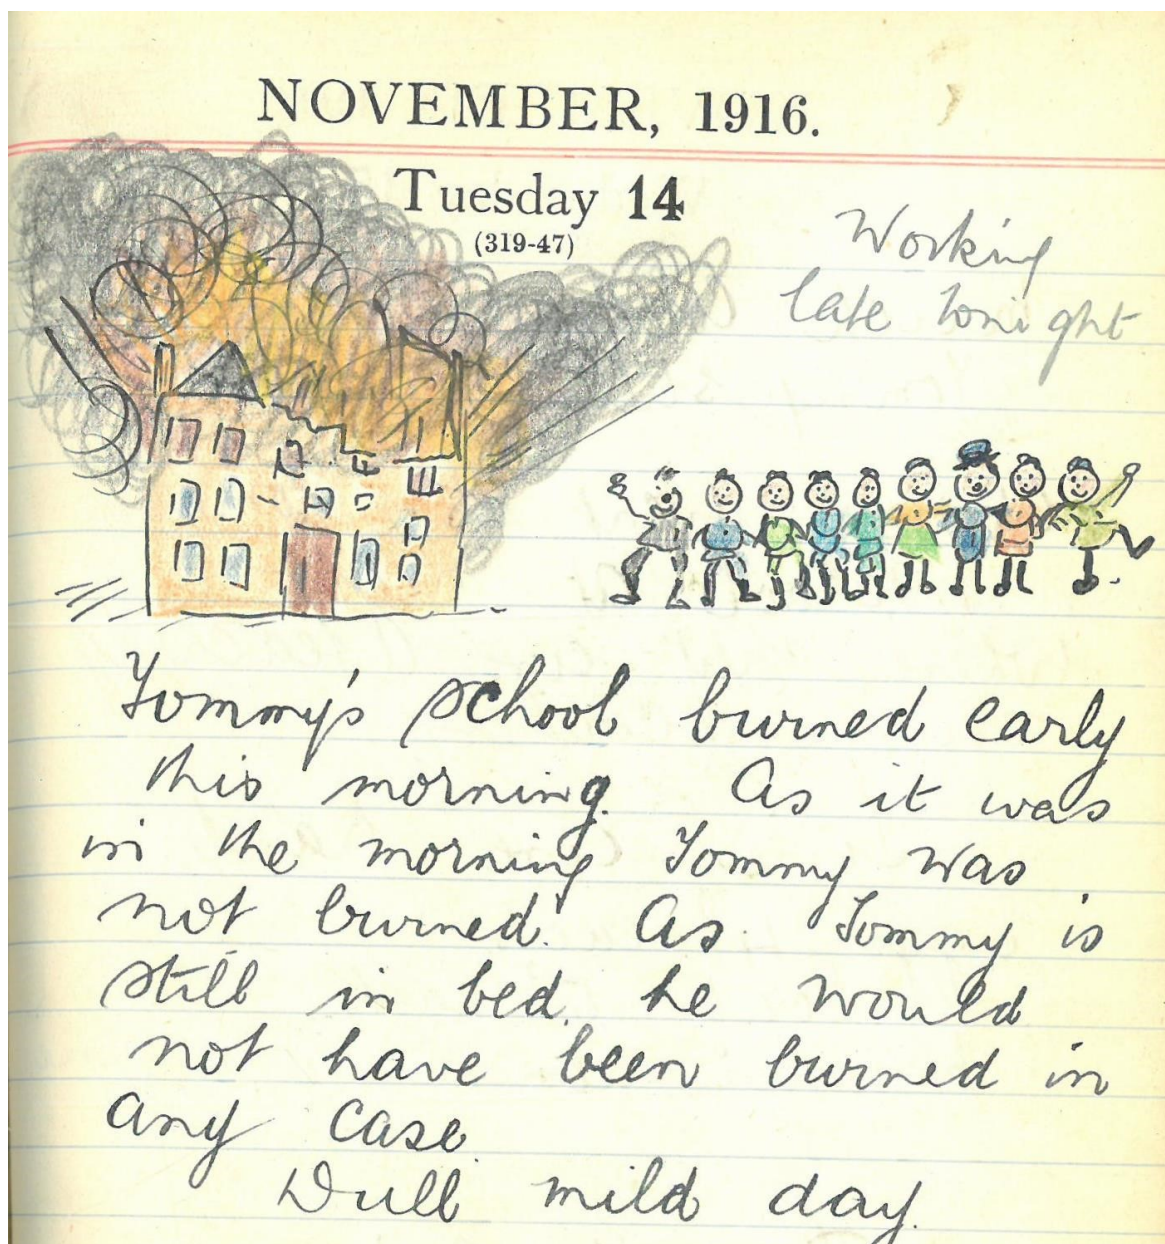 NOVEMBER, 1916.
Tuesday 14
(319-47)
Working
late tonight
Tommy's school burned early
this morning. As it was
in the morning Tommy was
not burned. As Tommy is
still in bed he would
not have been burned in
any case.
Dull mild day.